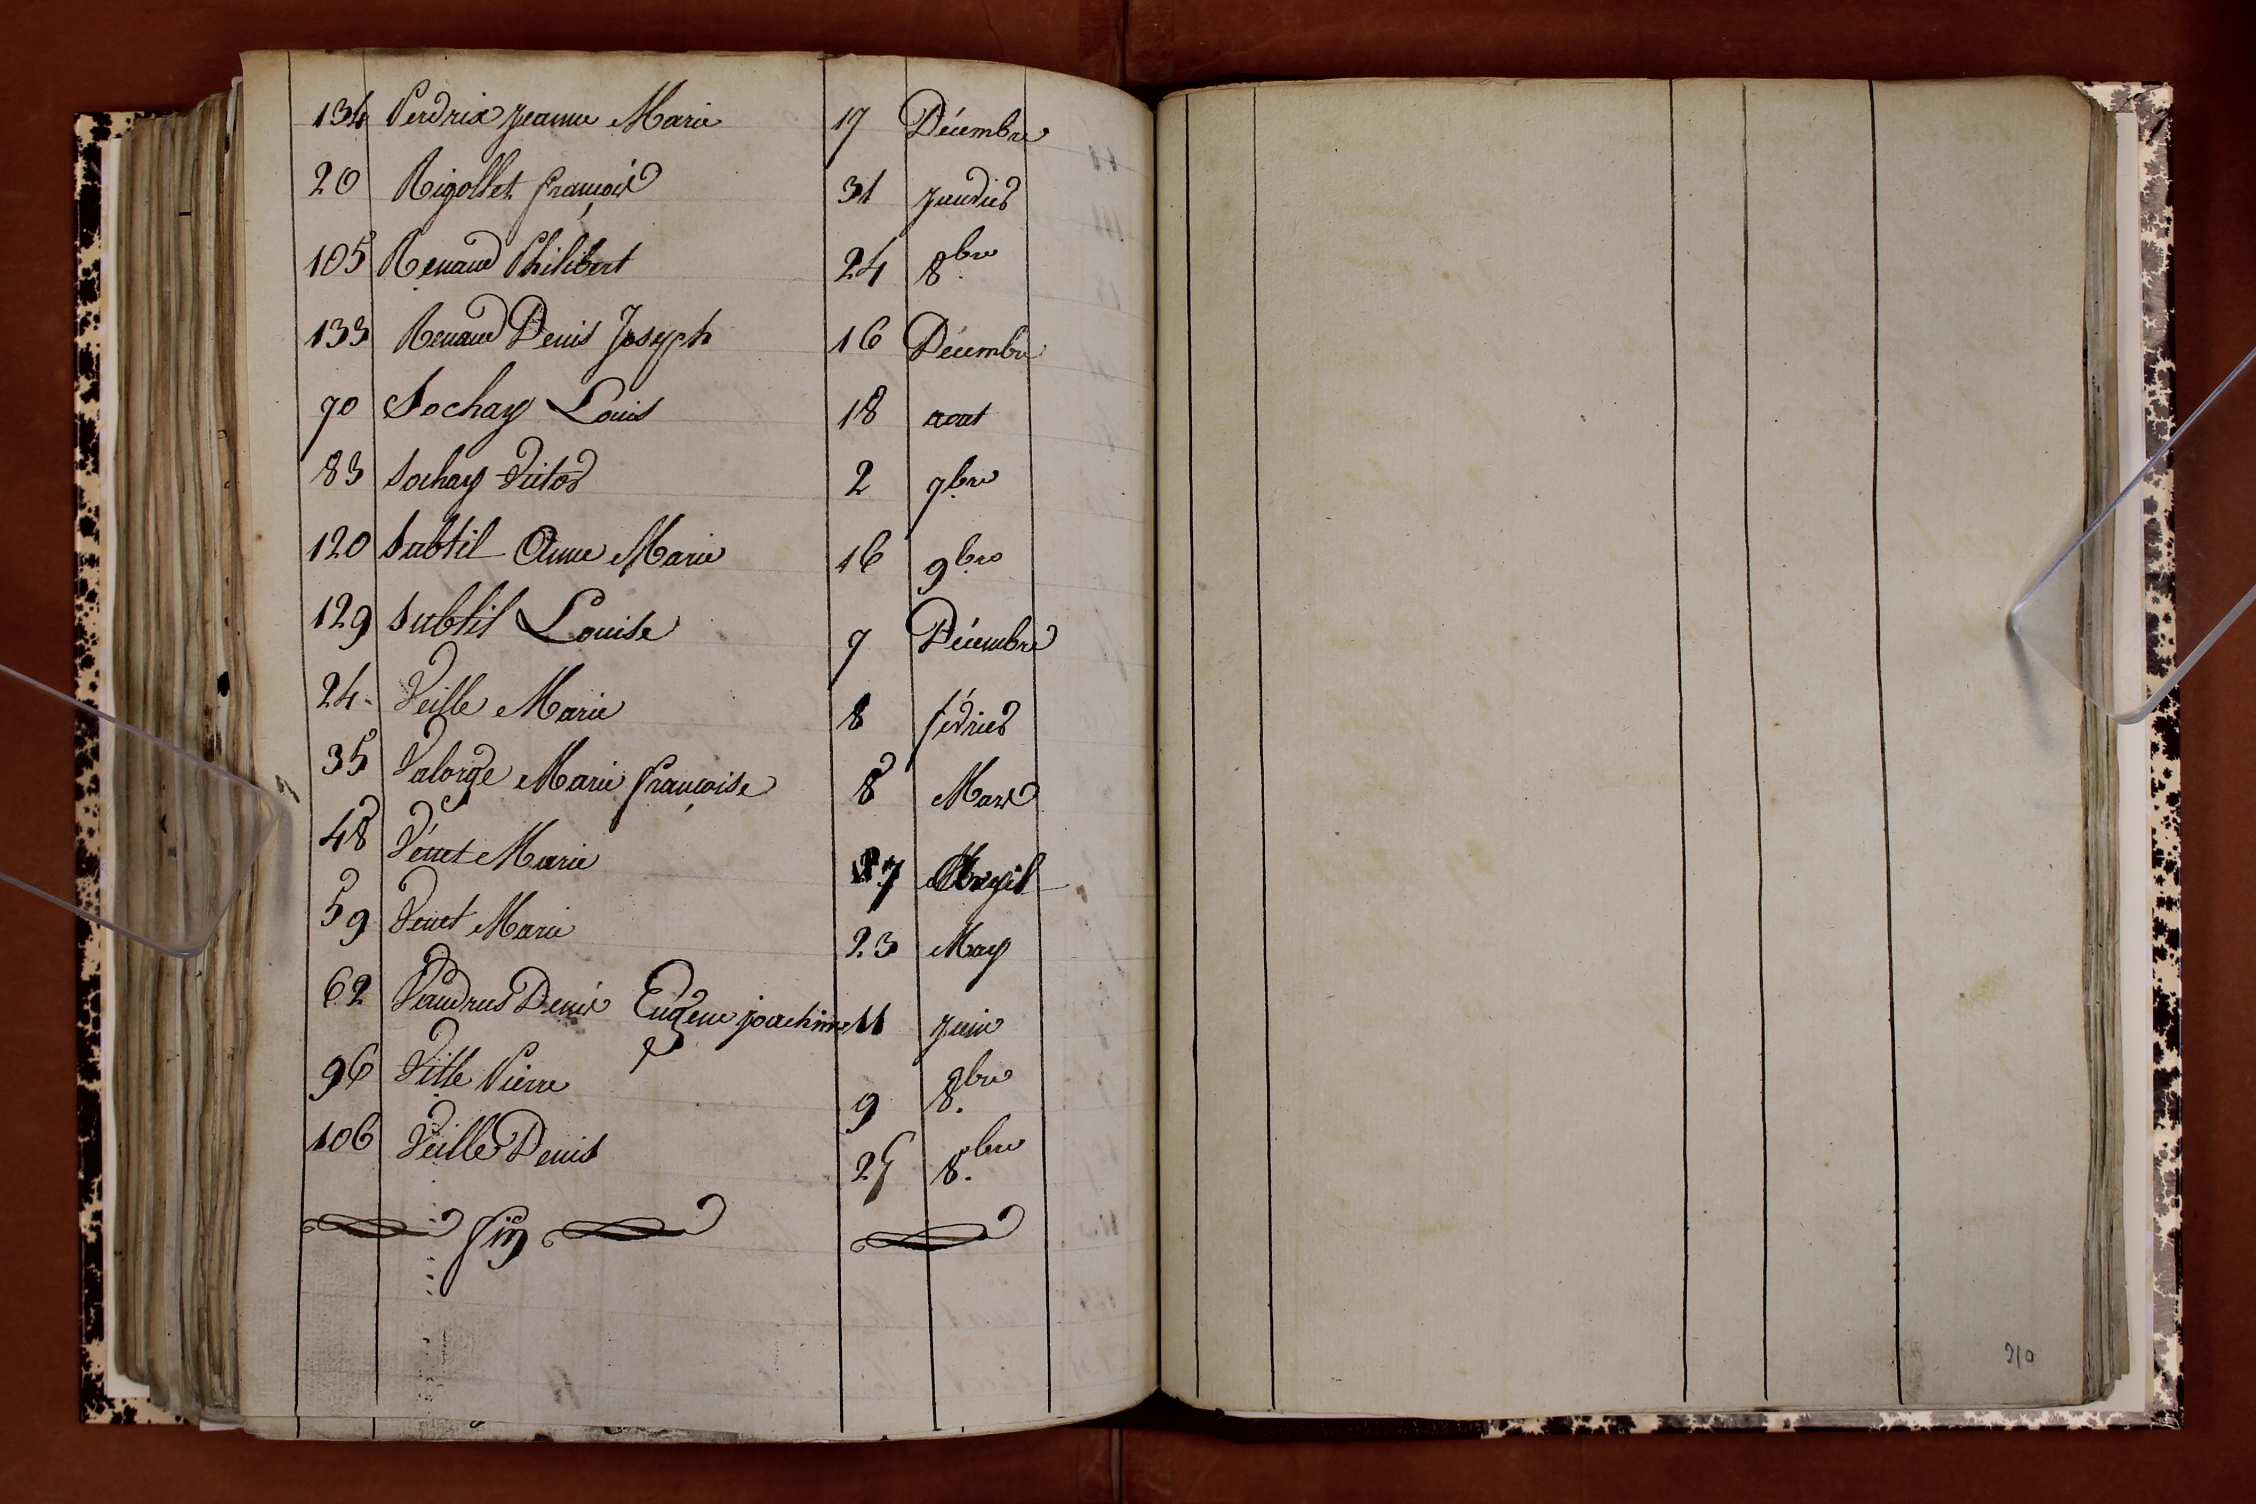 134 Perdrix Jeanne Marie 17 Décembre
20 Rigollet françois 31 Janvier
105 Renaud Philibert 24 8.bre
133 Renaud Denis Joseph 16 Décembre
70 Sochay Louis 18 aout
83 Sochay Victor 2 7bre
120 Subtil Anne Marie 16 9bre
129 Subtil Louise 7 Décembre
24 Veille Marie 8 février
35 Valorge Marie françoise 8 Mars
48 Vénet Marie 27 Avril
59 Venet Marie 23 May
62 Denis Eugene joachim 11 Juin
96 Ville Pierre 9 8.bre
106 Veille Denis 25 8.bre
fin
210